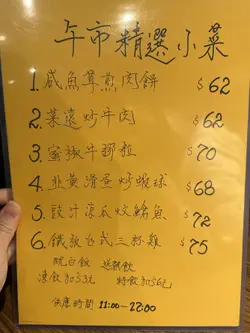 午市精選小菜
1. 咸魚茸煎肉餅 $62
2. 菜遠炒牛肉 $62
3. 蜜椒牛柳粒 $70
4. 韭黃滑蛋炒蝦球 $68
5. 豉汁涼瓜炆鱠魚 $72
6. 鐵板台式三杯雞 $75
跟白飯 送熱飲
凍飲加3元 特飲加6元
供應時間 11:00-22:00